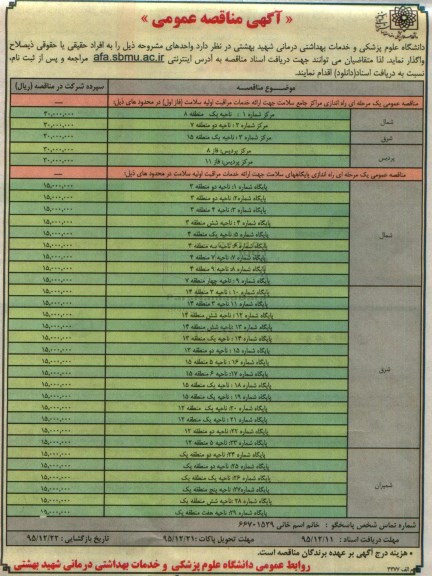 « آگهی مناقصه عمومی »
دانشگاه علوم پزشکی و خدمات بهداشتی درمانی شهید بهشتی در نظر دارد واحدهای مشروحه ذیل را به افراد حقیقی یا حقوقی ذیصلاح
واگذار نماید. لذا متقاضیان می توانند جهت دریافت اسناد مناقصه به آدرس اینترنتی afa.sbmu.ac.ir مراجعه و پس از ثبت نام،
نسبت به دریافت اسناد(دانلود) اقدام نمایند.
موضوع مناقصه سپرده شرکت در مناقصه (ریال)
مناقصه عمومی یک مرحله ای راه اندازی مراکز جامع سلامت جهت ارائه خدمات مراقبت اولیه سلامت (فاز اول) در محدود های ذیل: ---
شمال مرکز شماره ۱ : ناحیه یک منطقه ۸ ۳۰,۰۰۰,۰۰۰
مرکز شماره ۲ : ناحیه دو منطقه ۷ ۳۰,۰۰۰,۰۰۰
شرق مرکز شماره ۳ : ناحیه یک منطقه ۱۵ ۳۰,۰۰۰,۰۰۰
پردیس مرکز پردیس: فاز ۸ ۳۰,۰۰۰,۰۰۰
مرکز پردیس: فاز ۱۱ ۳۰,۰۰۰,۰۰۰
مناقصه عمومی یک مرحله ای راه اندازی پایگاههای سلامت جهت ارائه خدمات مراقبت اولیه سلامت در محدود های ذیل: ---
شمال پایگاه شماره ۱: ناحیه دو منطقه ۱۵,۰۰۰,۰۰۰
پایگاه شماره ۲: ناحیه دو منطقه ۱۵,۰۰۰,۰۰۰
پایگاه شماره ۳: ناحیه منطقه ۱۵,۰۰۰,۰۰۰
پایگاه شماره ۴ : ناحیه شش منطقه ۱۵,۰۰۰,۰۰۰
پایگاه شماره ۵: ناحیه یک منطقه ۴ ۱۵,۰۰۰,۰۰۰
پایگاه شماره ۶: ناحیه سه منطقه ۴ ۱۵,۰۰۰,۰۰۰
پایگاه شماره ۷: ناحیه ۷ منطقه ۴ ۱۵,۰۰۰,۰۰۰
پایگاه شماره ۸: ناحیه ۹ منطقه ۴ ۱۵,۰۰۰,۰۰۰
پایگاه شماره ۹ : ناحیه چهار منطقه ۷ ۱۵,۰۰۰,۰۰۰
شرق پایگاه شماره ۱۰ : ناحیه ۳ منطقه ۱۴ ۱۵,۰۰۰,۰۰۰
پایگاه شماره ۱۱: ناحیه ۳ منطقه ۱۴ ۱۵,۰۰۰,۰۰۰
پایگاه شماره ۱۲ : ناحیه شش منطقه ۱۴ ۱۵,۰۰۰,۰۰۰
پایگاه شماره ۱۳: ناحیه شش منطقه ۱۴ ۱۵,۰۰۰,۰۰۰
پایگاه شماره ۱۴ : ناحیه یک منطقه ۱۳ ۱۵,۰۰۰,۰۰۰
پایگاه شماره ۱۵: ناحیه دو منطقه ۱۳ ۱۵,۰۰۰,۰۰۰
پایگاه شماره ۱۶: ناحیه ۵ منطقه ۱۵ ۱۵,۰۰۰,۰۰۰
پایگاه شماره ۱۷: ناحیه ۶ منطقه ۱۵ ۱۵,۰۰۰,۰۰۰
پایگاه شماره ۱۸ : ناحیه یک منطقه ۱۵ ۱۵,۰۰۰,۰۰۰
پایگاه شماره ۱۹ : ناحیه یک منطقه ۱۵ ۱۵,۰۰۰,۰۰۰
پایگاه شماره ۲۰: ناحیه یک منطقه ۱۲ ۱۵,۰۰۰,۰۰۰
پایگاه شماره ۲۱ : ناحیه یک منطقه ۱۲ ۱۵,۰۰۰,۰۰۰
پایگاه شماره ۲۲: ناحیه دو منطقه ۱۲ ۱۵,۰۰۰,۰۰۰
پایگاه شماره ۲۳: ناحیه ۵ منطقه ۱۲ ۱۵,۰۰۰,۰۰۰
شمیران پایگاه شماره ۲۴: ناحیه دو منطقه یک ۱۵,۰۰۰,۰۰۰
پایگاه شماره ۲۵: ناحیه دو منطقه یک ۱۵,۰۰۰,۰۰۰
پایگاه شماره ۲۶: ناحیه یک منطقه یک ۱۵,۰۰۰,۰۰۰
پایگاه شماره ۲۷: ناحیه پنج منطقه یک ۱۵,۰۰۰,۰۰۰
پایگاه شماره ۲۸: ناحیه شش منطقه یک ۱۵,۰۰۰,۰۰۰
پایگاه شماره ۲۹: ناحیه هفت منطقه یک ۱۵,۰۰۰,۰۰۰
شماره تماس شخص پاسخگو : خانم اسم خانی ۶۶۷۰۱۵۲۹
مهلت دریافت اسناد : ۹۵/۱۲/۱۱ مهلت تحویل پاکات :۹۵/۱۲/۲۱ تاریخ بازگشایی: ۹۵/۱۲/۲۲
• هزینه درج آگهی بر عهده برندگان مناقصه است.
روابط عمومی دانشگاه علوم پزشکی و خدمات بهداشتی درمانی شهید بهشتی